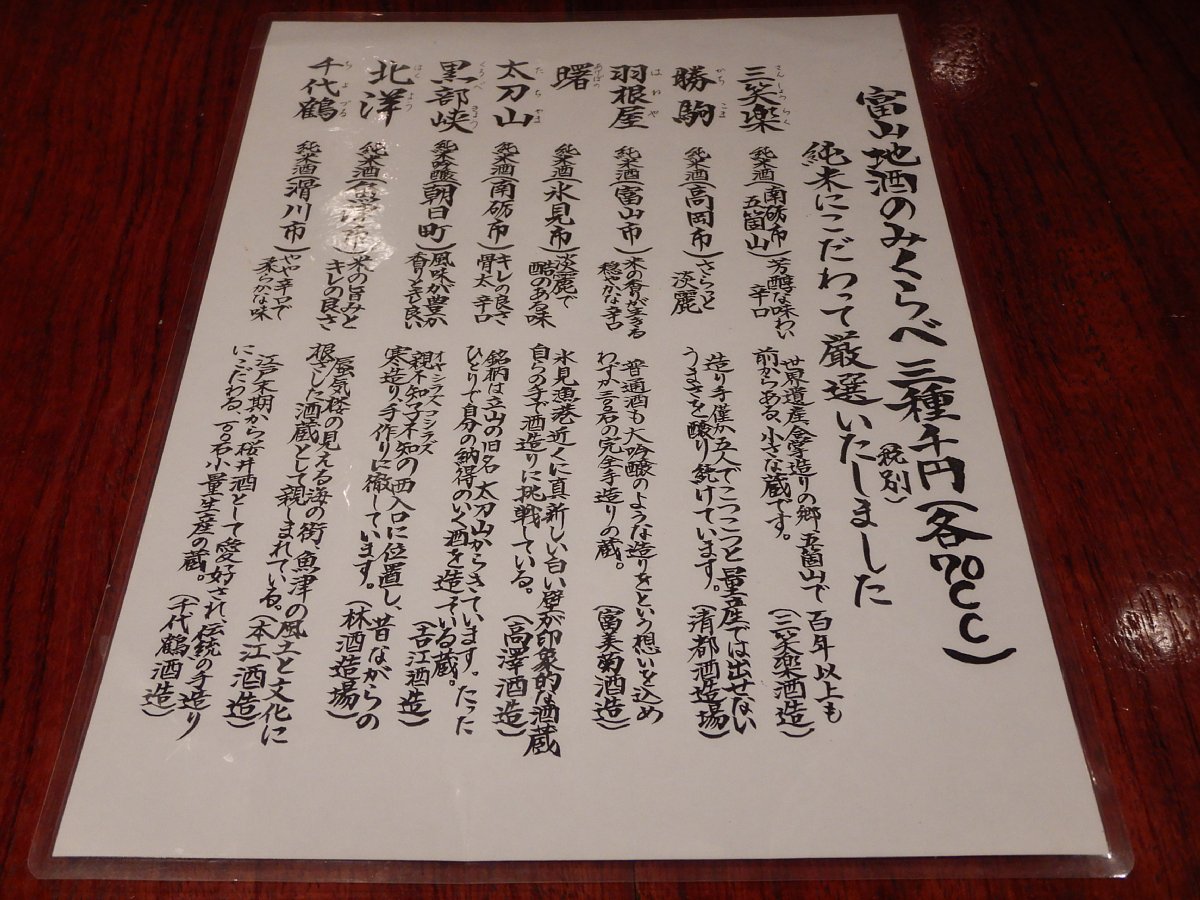 富山地酒のみくらべ 三種千円(各70cc)
(税別)
純米にこだわって厳選いたしました
三笑楽 さんしょうらく
純米酒(南砺市五箇山)
芳醇な味わい
辛口
世界遺産合掌造りの郷、五箇山で百年以上も
前からある、小さな蔵です。(三笑楽酒造)
勝駒 かちこま
純米酒(高岡市)
さらっと
淡麗
造り手僅か五人でこつこつと量産では出せない
うまさを醸り続けています。(清都酒造場)
羽根屋 はねや
純米酒(富山市)
米の香りが生きる
穏やかな辛口
普通酒も大吟醸のような造りをという想いを込め
わずか三百石の完全手造りの蔵。(富美菊酒造)
曙 あけぼの
純米酒(氷見市)
淡麗で
酷のある味
氷見漁港近くに真新しい白い壁が印象的な酒蔵
自らの手で酒造りに挑戦している。(高澤酒造)
太刀山 たちやま
純米酒(南砺市)
キレの良さ
骨太 辛口
銘柄は立山の旧名、太刀山からきています。たった
ひとりで自分の納得のいく酒を造っている蔵。(吉江酒造)
黒部峡 くろべきょう
純米吟醸(朝日町)
風味が豊か
香りと良い
親不知子不知の西入口に位置し、昔ながらの
オヤシラズコシラズ
寒造り、手作りに徹しています。(林酒造場)
北洋 ほくよう
純米酒(魚津市)
米の旨みと
キレの良さ
蜃気楼の見える海の街、魚津の風土と文化に
根ざした酒蔵として親しまれている。(本江酒造)
千代鶴 ちよづる
純米酒(滑川市)
やや辛口で
柔らかな味
江戸末期から桜井酒として愛好され、伝統の手造り
にこだわる、百石小量生産の蔵。(千代鶴酒造)